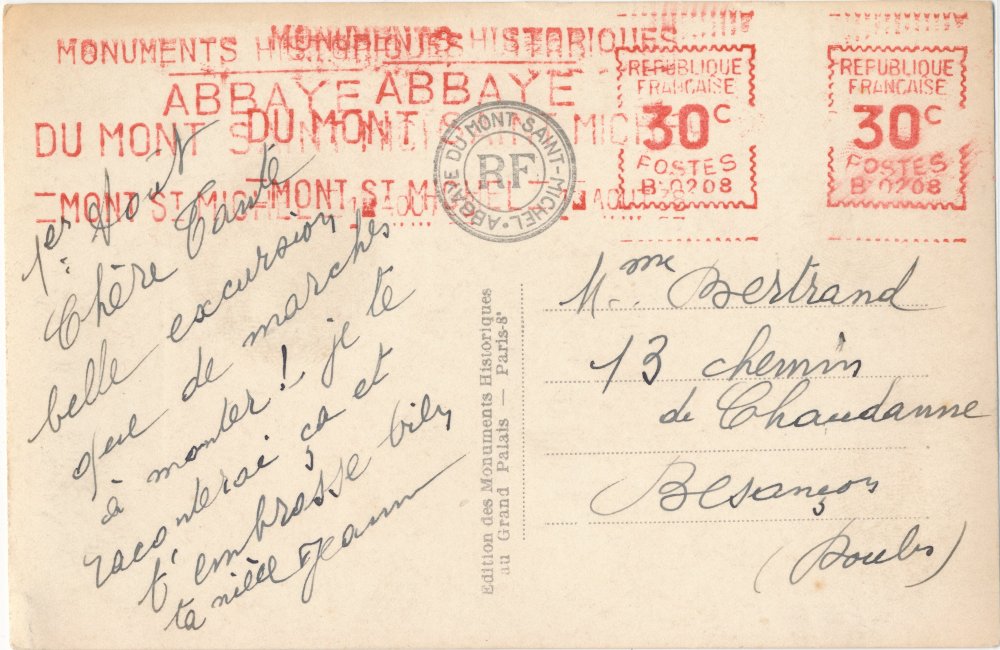 MONUMENTS HISTORIQUES MONUMENTS HISTORIQUES
ABBAYE ABBAYE
DU MONT SAINT MICHEL DU MONT SAINT MICHEL
MONT ST MICHEL MONT ST MICHEL
AOUT
REPUBLIQUE
FRANCAISE
30c
POSTES
B 0208
REPUBLIQUE
FRANCAISE
30c
POSTES
B 0208
ABBAYE DU MONT SAINT-MICHEL
RF
1er Août
Chère Tante
belle excursion
que de marches
à monter! je te
raconterai ça et
t'embrasse bien
ta nièce Jeanne
Edition des Monuments Historiques
au Grand Palais — Paris-8e
Mme Bertrand
13 chemin
de Chaudanne
Besançon
(Doubs)